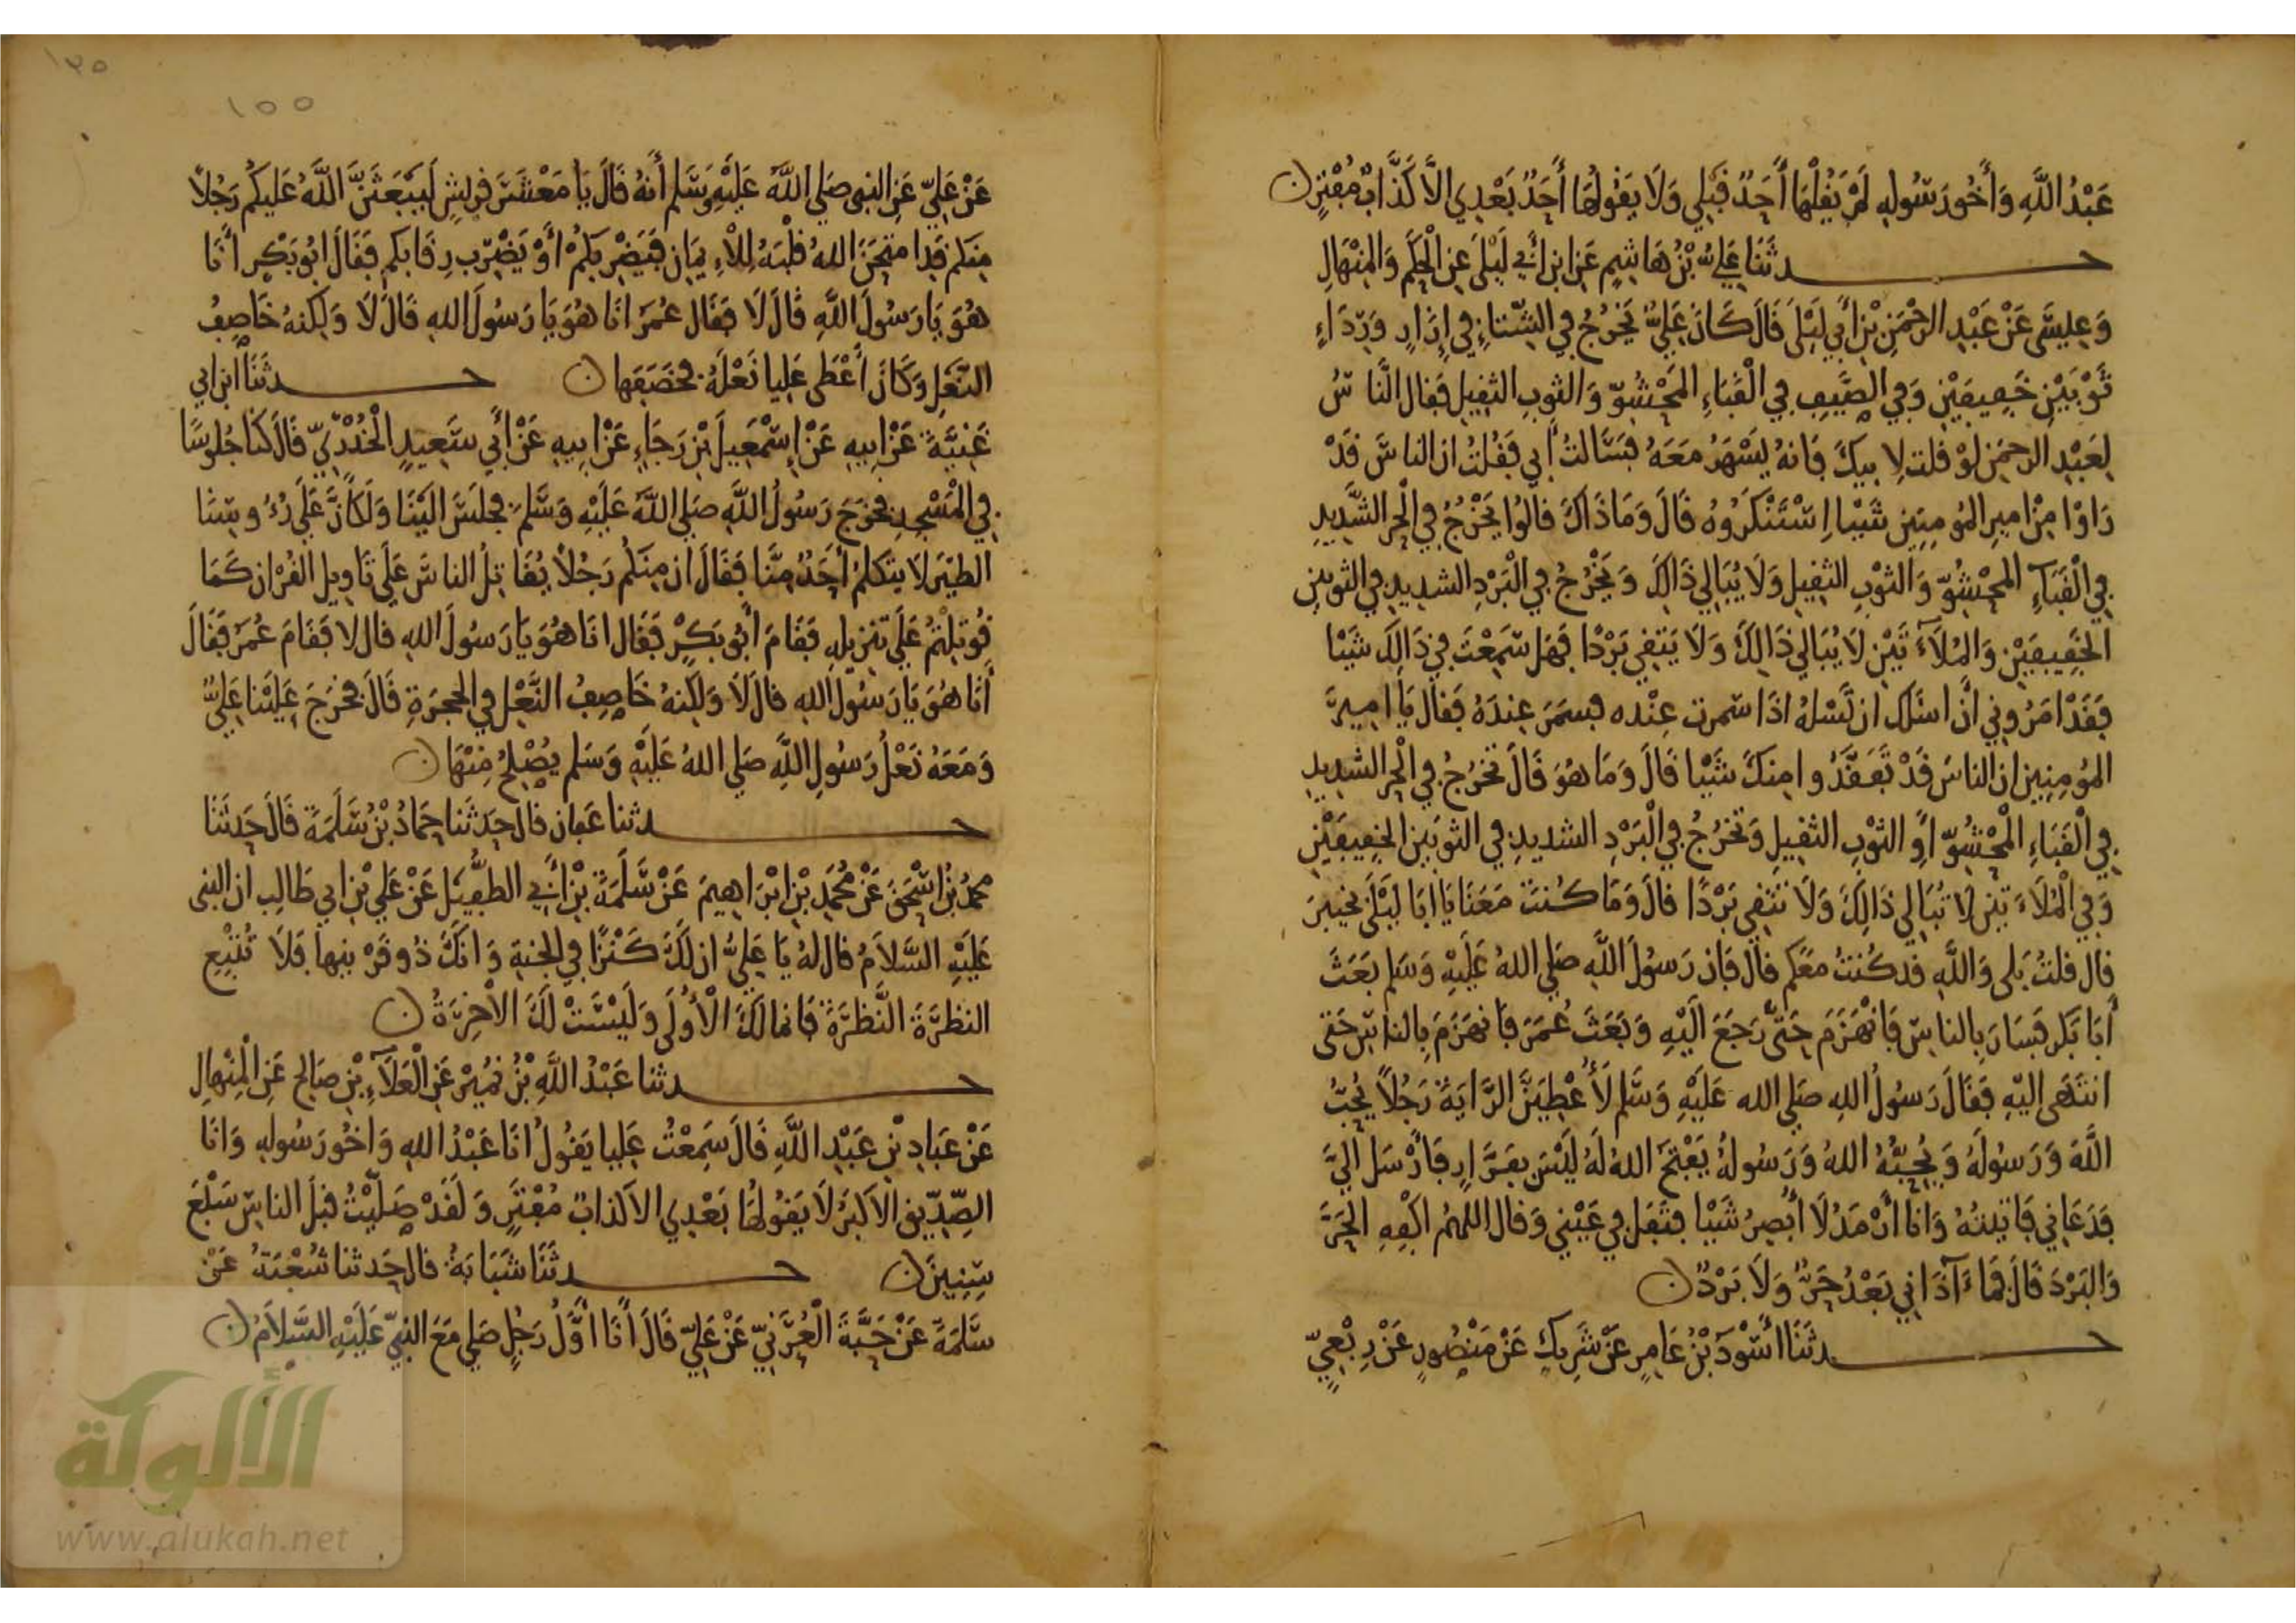 عَبْدُ اللَّهِ وَأَخُو رَسُولِهِ لَمْ يَقُلْهَا أَحَدٌ قَبْلِي وَلَا يَقُولُهَا أَحَدٌ بَعْدِي الاَّ كَذَّابٌ مُفْتَرٍ
حـدثَنَا عَلِيُّ بْنُ هَاشِمٍ عَنِ ابْنِ أَبِي لَيْلَى عَنِ الْحَكَمِ وَالْمِنْهَالِ
وَعِيسَى عَنْ عَبْدِ الرحْمَنِ بْنِ أَبِي لَيْلَى قَالَ كَانَ عَلِيٌّ يَخْرُجُ فِي الشِّتَاءِ فِي إِزَارٍ وَرِدَاءٍ
ثَوْبَيْنِ خَفِيفَيْنِ وَفِي الصَّيْفِ فِي الْقَبَاءِ الْمَحْشُوِّ وَالثوبِ الثقِيلِ فَقَال النَّاسُ
لِعَبْدِ الرحمَنِ لَوْ قلت لِابِيكَ فَانهُ يَسْهَرُ مَعَهُ فَسَالتُ أَبِي فَقُلتُ ان الناسَ قَدْ
رَاوْا مِنْ امِيرِ المُومِنِين شَيْيا اِسْتَنْكَرُوهُ قَالَ وَمَا ذَاكَ قالُوا يَخْرُجُ فِي الْحَرِّ الشَّدِيدِ
فِي الْقَبَآءِ الْمَحْشُوِّ وَالثوْبِ الثقِيلِ وَلَا يُبَالِي ذَالِكَ وَيَخْرُجُ فِي الْبَرْدِ الشدِيدِ فِي الثوبَيْنِ
الخَفِيفَيْنِ وَالْمُلَآءَتَيْنِ لَا يُبَالِي ذَالِكَ وَلَا يَتقِي بَرْدًا فَهَل سَمِعْتَ فِي ذَالِكَ شَيْيا
فَقَدْ امَرُونِي أنْ اسْلَك ان تَسْلَهُ اذَا سَمرت عِنْده فسَمَرَ عِندَهُ فَقال يَا امِيرَ
المُومِنِين ان الناسَ قَدْ تَفَقَّدُوا مِنكَ شَيْيا قَالَ وَمَا هُوَ قَالَ تَخْرُجُ فِي الْحَرِّ الشدِيدِ
فِي الْقَبَاءِ الْمَحْشُوِّ أَوِ الثوْبِ الثقِيلِ وَتَخرُجُ فِي الْبَرْدِ الشديدِ فِي الثوبَيْن الخفِيفَيْنِ
وَفِي الْمُلَاءَتَيْنِ لَا تُبَالِي ذَالِكَ وَلَا تَتقِي بَرْدًا قالَ وَمَا كُنتَ مَعَنَا يَا ابَا لَيْلَى بخَيْبَرَ
قال قلتُ بَلى وَاللَّهِ قد كُنتُ مَعَكم قالَ فَان رَسُولَ اللَّهِ صَلى اللهُ عَلَيْهِ وَسَلم بَعَثَ
أَبَا بَكر فَسَارَ بِالناسِ فَانْهَزَمَ حَتَّى رَجَعَ الَيْهِ وَبَعَثَ عُمَرَ فَانهَزَمَ بِالناسِ حَتى
انتَهَى اليْهِ فَقَالَ رَسُولُ اللهِ صَلى الله عَلَيْهِ وَسَلم لَأُعْطِيَنَّ الرَّايَةَ رَجُلاً يُحِبُّ
اللَّهَ وَرَسُولَهُ وَيُحِبُّهُ اللهُ وَرَسُولهُ يَفْتَحُ اللهُ لَهُ لَيْسَ بفَرَّارٍ فَأَرْسَل الَيَّ
فَدَعَانِي فَاتَيتُهُ وَانا أَرْمَدُ لَا أُبْصِرُ شَيْيا فتَفَل فِي عَيْنِي وَقَال اللهُمَّ اكْفِهِ الحَرَّ
وَالبَرْدَ قَالَ فَمَآ آذَانِي بَعْدُ حَرٌّ وَلَا بَرْدٌ
حـدثَنَا أَسْوَدُ بْنُ عَامِرٍ عَنْ شَرِيكٍ عَنْ مَنْصُورٍ عَنْ رِبْعِيٍّ
١٣٥
١٥٥
عَنْ عَلِيٍّ عَنِ النبي صَلى اللَّهُ عَلَيْهِ وَسَلم أَنهُ قَالَ يَا مَعْشَرَ قريْشٍ لَيَبْعَثَنَّ اللَّهُ عَلَيكُم رَجُلاً
مِنكم قَدِ امتحَنَ اللهُ قلْبَهُ لِلْاءِيمَانِ فَيَضْرِبَكُمْ أَوْ يَضْرِب رِقَابكم فَقَالَ ابُو بَكْرٍ أَنَا
هُوَ يَا رَسُولَ اللَّهِ قَالَ لَا فَقَال عُمَرُ انَا هُوَ يَا رَسُولَ اللهِ قَالَ لَا وَلكِنهُ خَاصِفُ
النَّعْلِ وَكَانَ أَعْطَى عَلِيا نَعْلَهُ يَخصِفهَا حـدثَنَا ابن ابي
غَنِيَّةَ عَنْ ابِيهِ عَنْ إِسْمَعِيلَ بْنِ رَجَاءٍ عَنْ ابِيهِ عَنْ أَبِي سَعِيدٍ الْخُدْرِيِّ قَالَ كنا جُلوسًا
فِي الْمَسْجِدِ فخرَجَ رَسُولُ اللَّهِ صَلى اللَّهُ عَلَيْهِ وَسَلم فجلَسَ الَيْنَا وَلَكأَنَّ عَلَى رُءُوسِنَا
الطيْرَ لَا يتكلمُ أَحَدٌ مِنَّا فَقَالَ ان مِنكُم رَجُلاً يُقَاتِلُ الناسَ عَلَى تَاوِيلِ القُرْانِ كَمَا
قُوتِلْتُمْ عَلَى تَنزِيلِهِ فَقَامَ أَبُو بَكرٍ فَقَال انَا هُوَ يَا رَسُولَ اللهِ قال لا فَقَامَ عُمَرُ فَقَالَ
أَنَا هُوَ يَا رَسُولَ اللهِ قالَ لَا وَلكِنهُ خَاصِفُ النَّعْلِ فِي الحجرَةِ قَالَ فخرَجَ عَلَيْنَا عَلِيٌّ
وَمَعَهُ نَعْلُ رَسُولِ اللَّهِ صَلى اللهُ عَلَيْهِ وَسَلم يُصْلِحُ مِنْهَا
حـدثنا عَفان قَال حَدثَنَا حَمادُ بْنُ سَلَمَةَ قَالَ حَدثَنَا
محمدُ بْنُ اسْحَقَ عَنْ مُحَمَّدِ بْنِ ابْرَاهِيمَ عَنْ سَلَمَةَ بْنِ أَبِي الطُّفَيْلِ عَنْ عَلِيِّ بْنِ ابي طَالِب ان النبى
عَلَيْهِ السَّلاَمُ قال لهُ يَا عَلِيُّ ان لَكَ كَنْزًا فِي الجنةِ وَانَّكَ ذُو قَرْنيهَا فَلَا تُتْبِعِ
النظرَةَ النَّظرَةَ فَانما لَكَ الْأُولَى وَلَيْسَتْ لَكَ الْآخِرَةُ
حـدثنا عَبْدُ اللَّهِ بْنُ نُمَيْرٍ عَنِ الْعَلاَءِ بْنِ صَالح عَنِ الْمِنْهالِ
عَنْ عَبادِ بْنِ عَبْدِ اللَّهِ قَالَ سَمِعْتُ عَلِيا يَقُولُ انَا عَبْدُ اللهِ وَاخُو رَسُولِهِ وَانَا
الصِّدِّيق الاَكبَرُ لَا يَقُولُهَا بَعْدِي الا كذابٌ مُفْتَرٍ وَلَقَدْ صَلَّيْتُ قبلَ الناسِ سَبْعَ
سِنِينَ حـدثَنَا شَبَابَةُ قال حَدثنا شُعْبَةُ عَنْ
سَلَمَةَ عَنْ حَبَّةَ الْعُرَنِيِّ عَنْ عَلِيٍّ قَالَ أَنَا أَوَّلُ رَجُلٍ صَلى مَعَ النبِيِّ عَلَيْهِ السَّلاَمُ
الألوكة
www.alukah.net